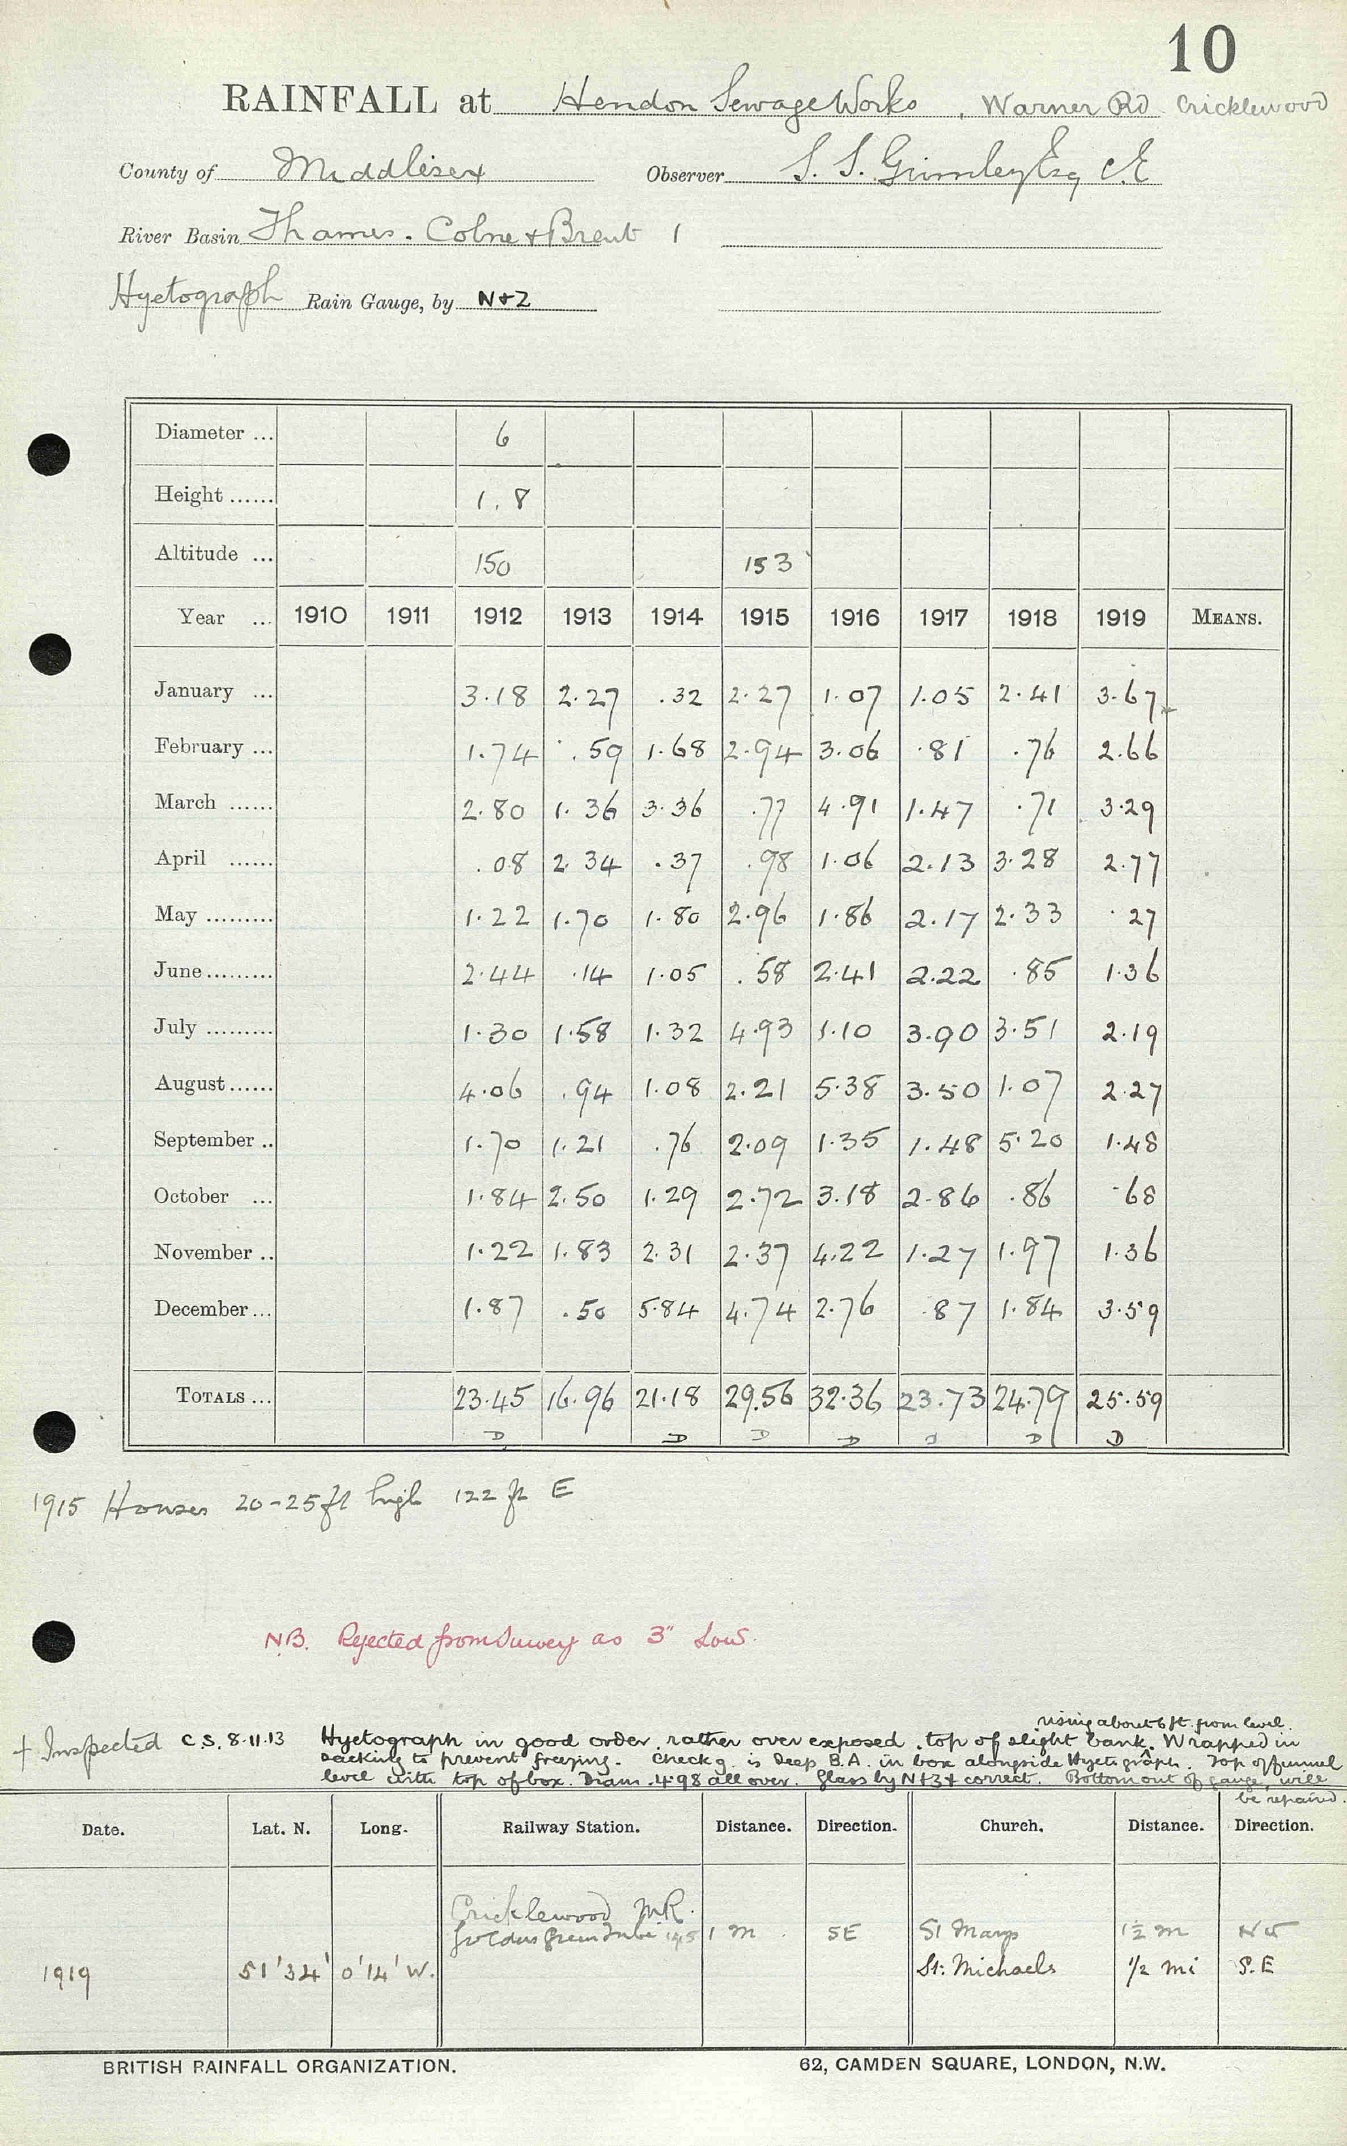 10
RAINFALL at Hendon Sewage Works, Warner Rd Cricklewood
County of Middlesex Observer S. S. Grimley Esq C.E
River Basin Thames. Colne & Brent 1
Hyetograph Rain Gauge, by N+Z
Diameter ... 6
Height ...... 1.8
Altitude ... 150 153
Year ... 1910 1911 1912 1913 1914 1915 1916 1917 1918 1919 MEANS.
January ... 3.18 2.27 .32 2.27 1.07 1.05 2.41 3.67
February ... 1.74 .59 1.68 2.94 3.06 .81 .76 2.66
March ...... 2.80 1.36 3.36 .77 4.91 1.47 .71 3.29
April ...... .08 2.34 .37 .98 1.06 2.13 3.28 2.77
May ......... 1.22 1.70 1.80 2.96 1.86 2.17 2.33 .27
June ......... 2.44 .14 1.05 .58 2.41 2.22 .85 1.36
July ......... 1.30 1.58 1.32 4.93 1.10 3.90 3.51 2.19
August ...... 4.06 .94 1.08 2.21 5.38 3.50 1.07 2.27
September .. 1.70 1.21 .76 2.09 1.35 1.48 5.20 1.48
October ... 1.84 2.50 1.29 2.72 3.18 2.86 .86 .68
November .. 1.22 1.83 2.31 2.37 4.22 1.27 1.97 1.36
December ... 1.87 .50 5.84 4.74 2.76 .87 1.84 3.59
TOTALS ... 23.45 16.96 21.18 29.56 32.36 23.73 24.79 25.59
D D D D D D D
1915 Houses 20-25ft high 122 ft E
N.B. Rejected from Survey as 3" Low.
rising about 6 ft from level.
+ Inspected C.S. 8.11.13 Hyetograph in good order, rather over exposed, top of slight bank. Wrapped in
sacking to prevent freezing. Check g. is deep B.A. in box alongside Hyetograph. Top of funnel
level with top of box. Diam. 4.98 all over. Glass by N+Z + correct. Bottom out of gauge, will
be repaired.
Date. Lat. N. Long. Railway Station. Distance. Direction. Church. Distance. Direction.
Cricklewood M.R.
Golders Green Tube 1915 1 m SE St Marys 1½ m NW
1919 51°34' 0°14' W. St. Michaels 1/2 mi S.E
BRITISH RAINFALL ORGANIZATION. 62, CAMDEN SQUARE, LONDON, N.W.